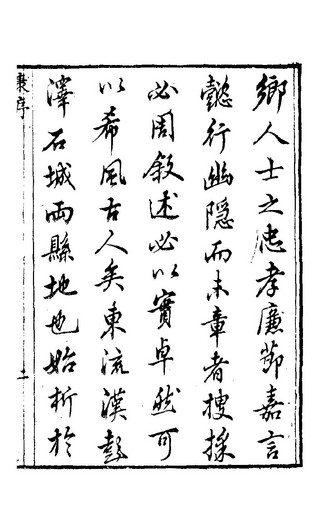 鄉人士之忠孝廉節嘉言
懿行幽隱而未章者搜採
必周敘述必以實卓然可
以希風古人矣東流漢彭
澤石城兩縣地也始析於
序
二